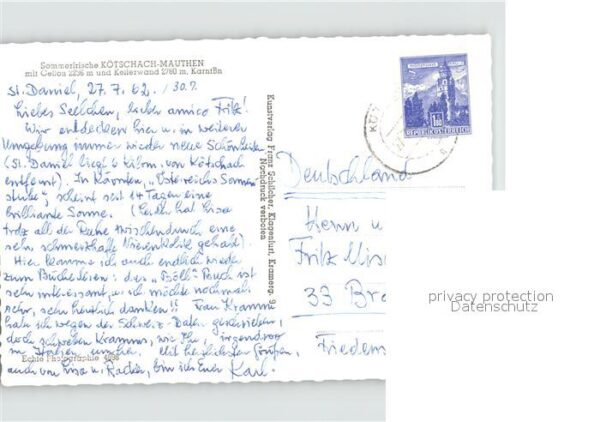 Sommerfrische KÖTSCHACH-MAUTHEN
mit Cellon 2236 m und Kellerwand 2780 m, Kärnten
St. Daniel, 27. 7. 62. / 30.7.
Liebes Seelchen, lieber amico Fritz!
Wir entdecken hier u. in weiterer
Umgebung immer wieder neue Schönheiten
(St. Daniel liegt 6 Kilom. von Kötschach
entfernt). In Kärnten, "Österreichs Sonnen
stube", scheint seit 14 Tagen eine
brillante Sonne. (Leider hat
trotz all der Ruhe zwischendurch eine
sehr schmerzhafte Nierenkolik gehabt).
Hier komme ich auch endlich wieder
zum Bücherlesen: das "Böll" Buch ist
sehr interessant, u. ich möchte nochmals
sehr, sehr herzlich danken!! Frau Kramme
habe ich wegen der Schweiz-Daten geschrieben,
doch schweben Krammes, wie Ihr, irgendwo
in umher. Mit herzlichsten Grüßen,
Echte Photographie 4298
auch von u. bin ich Euer Karl.
Kunstverlag Franz Schilcher, Klagenfurt, Kramerg. 9
Nachdruck verboten
REPUBLIK ÖSTERREICH
Deutschland
Herrn u
Fritz
33 Br
privacy protection
Datenschutz